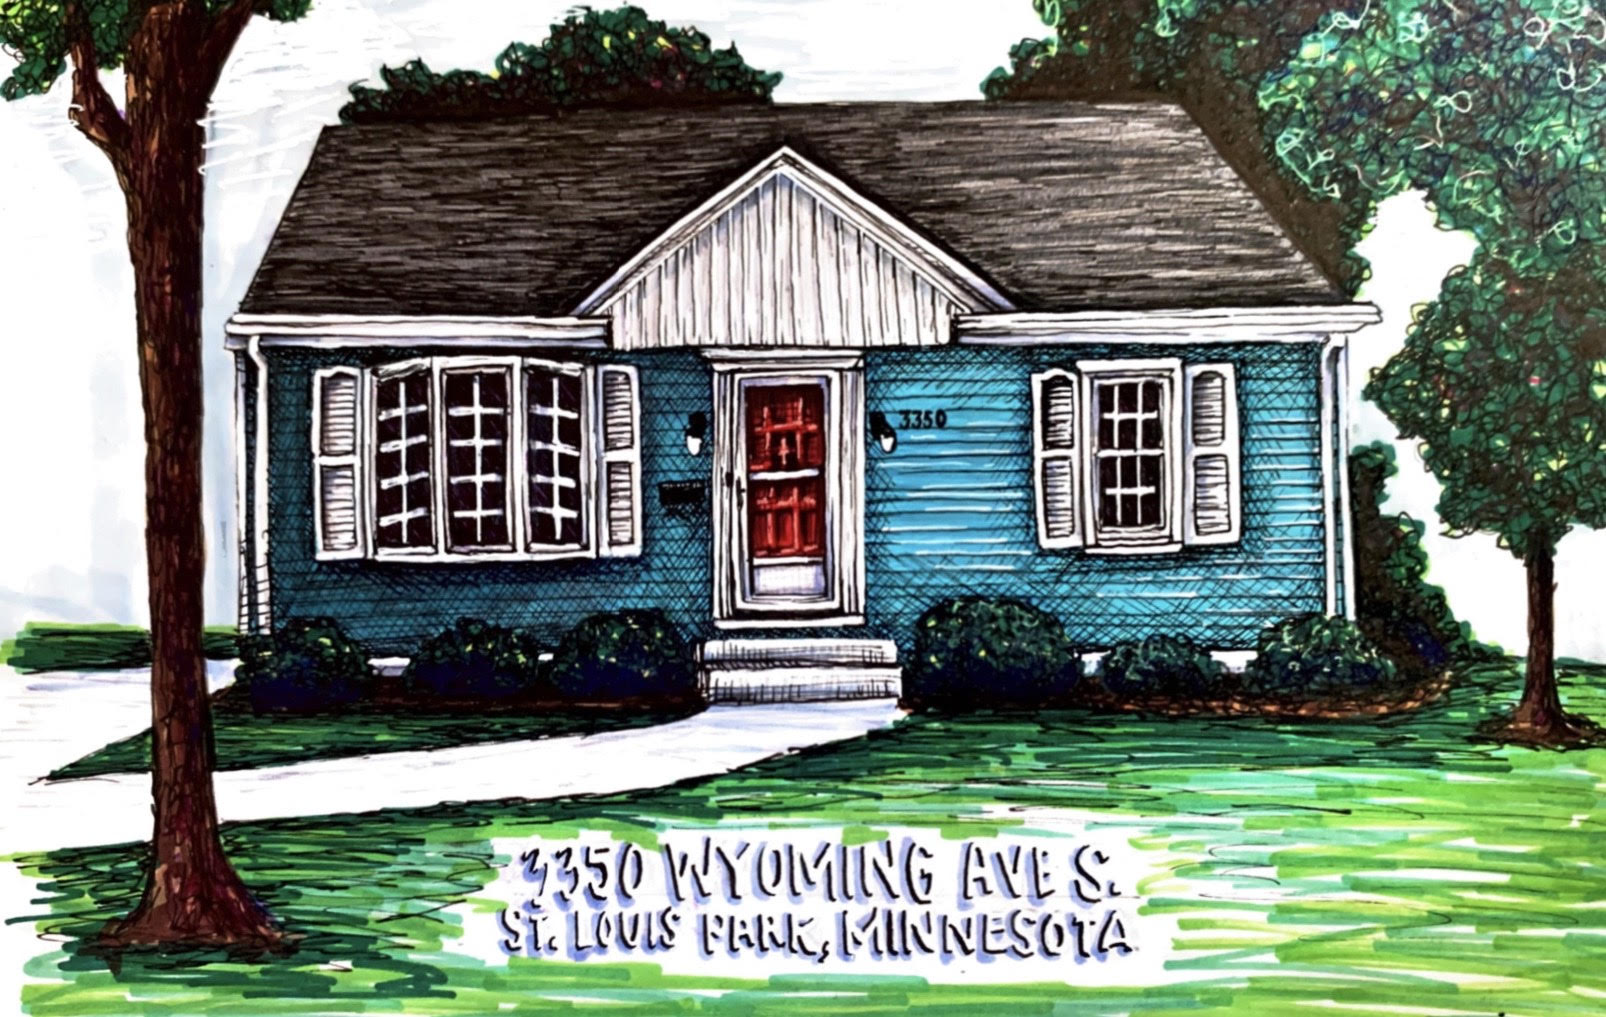 3350
3350 WYOMING AVE S.
ST. LOUIS PARK, MINNESOTA